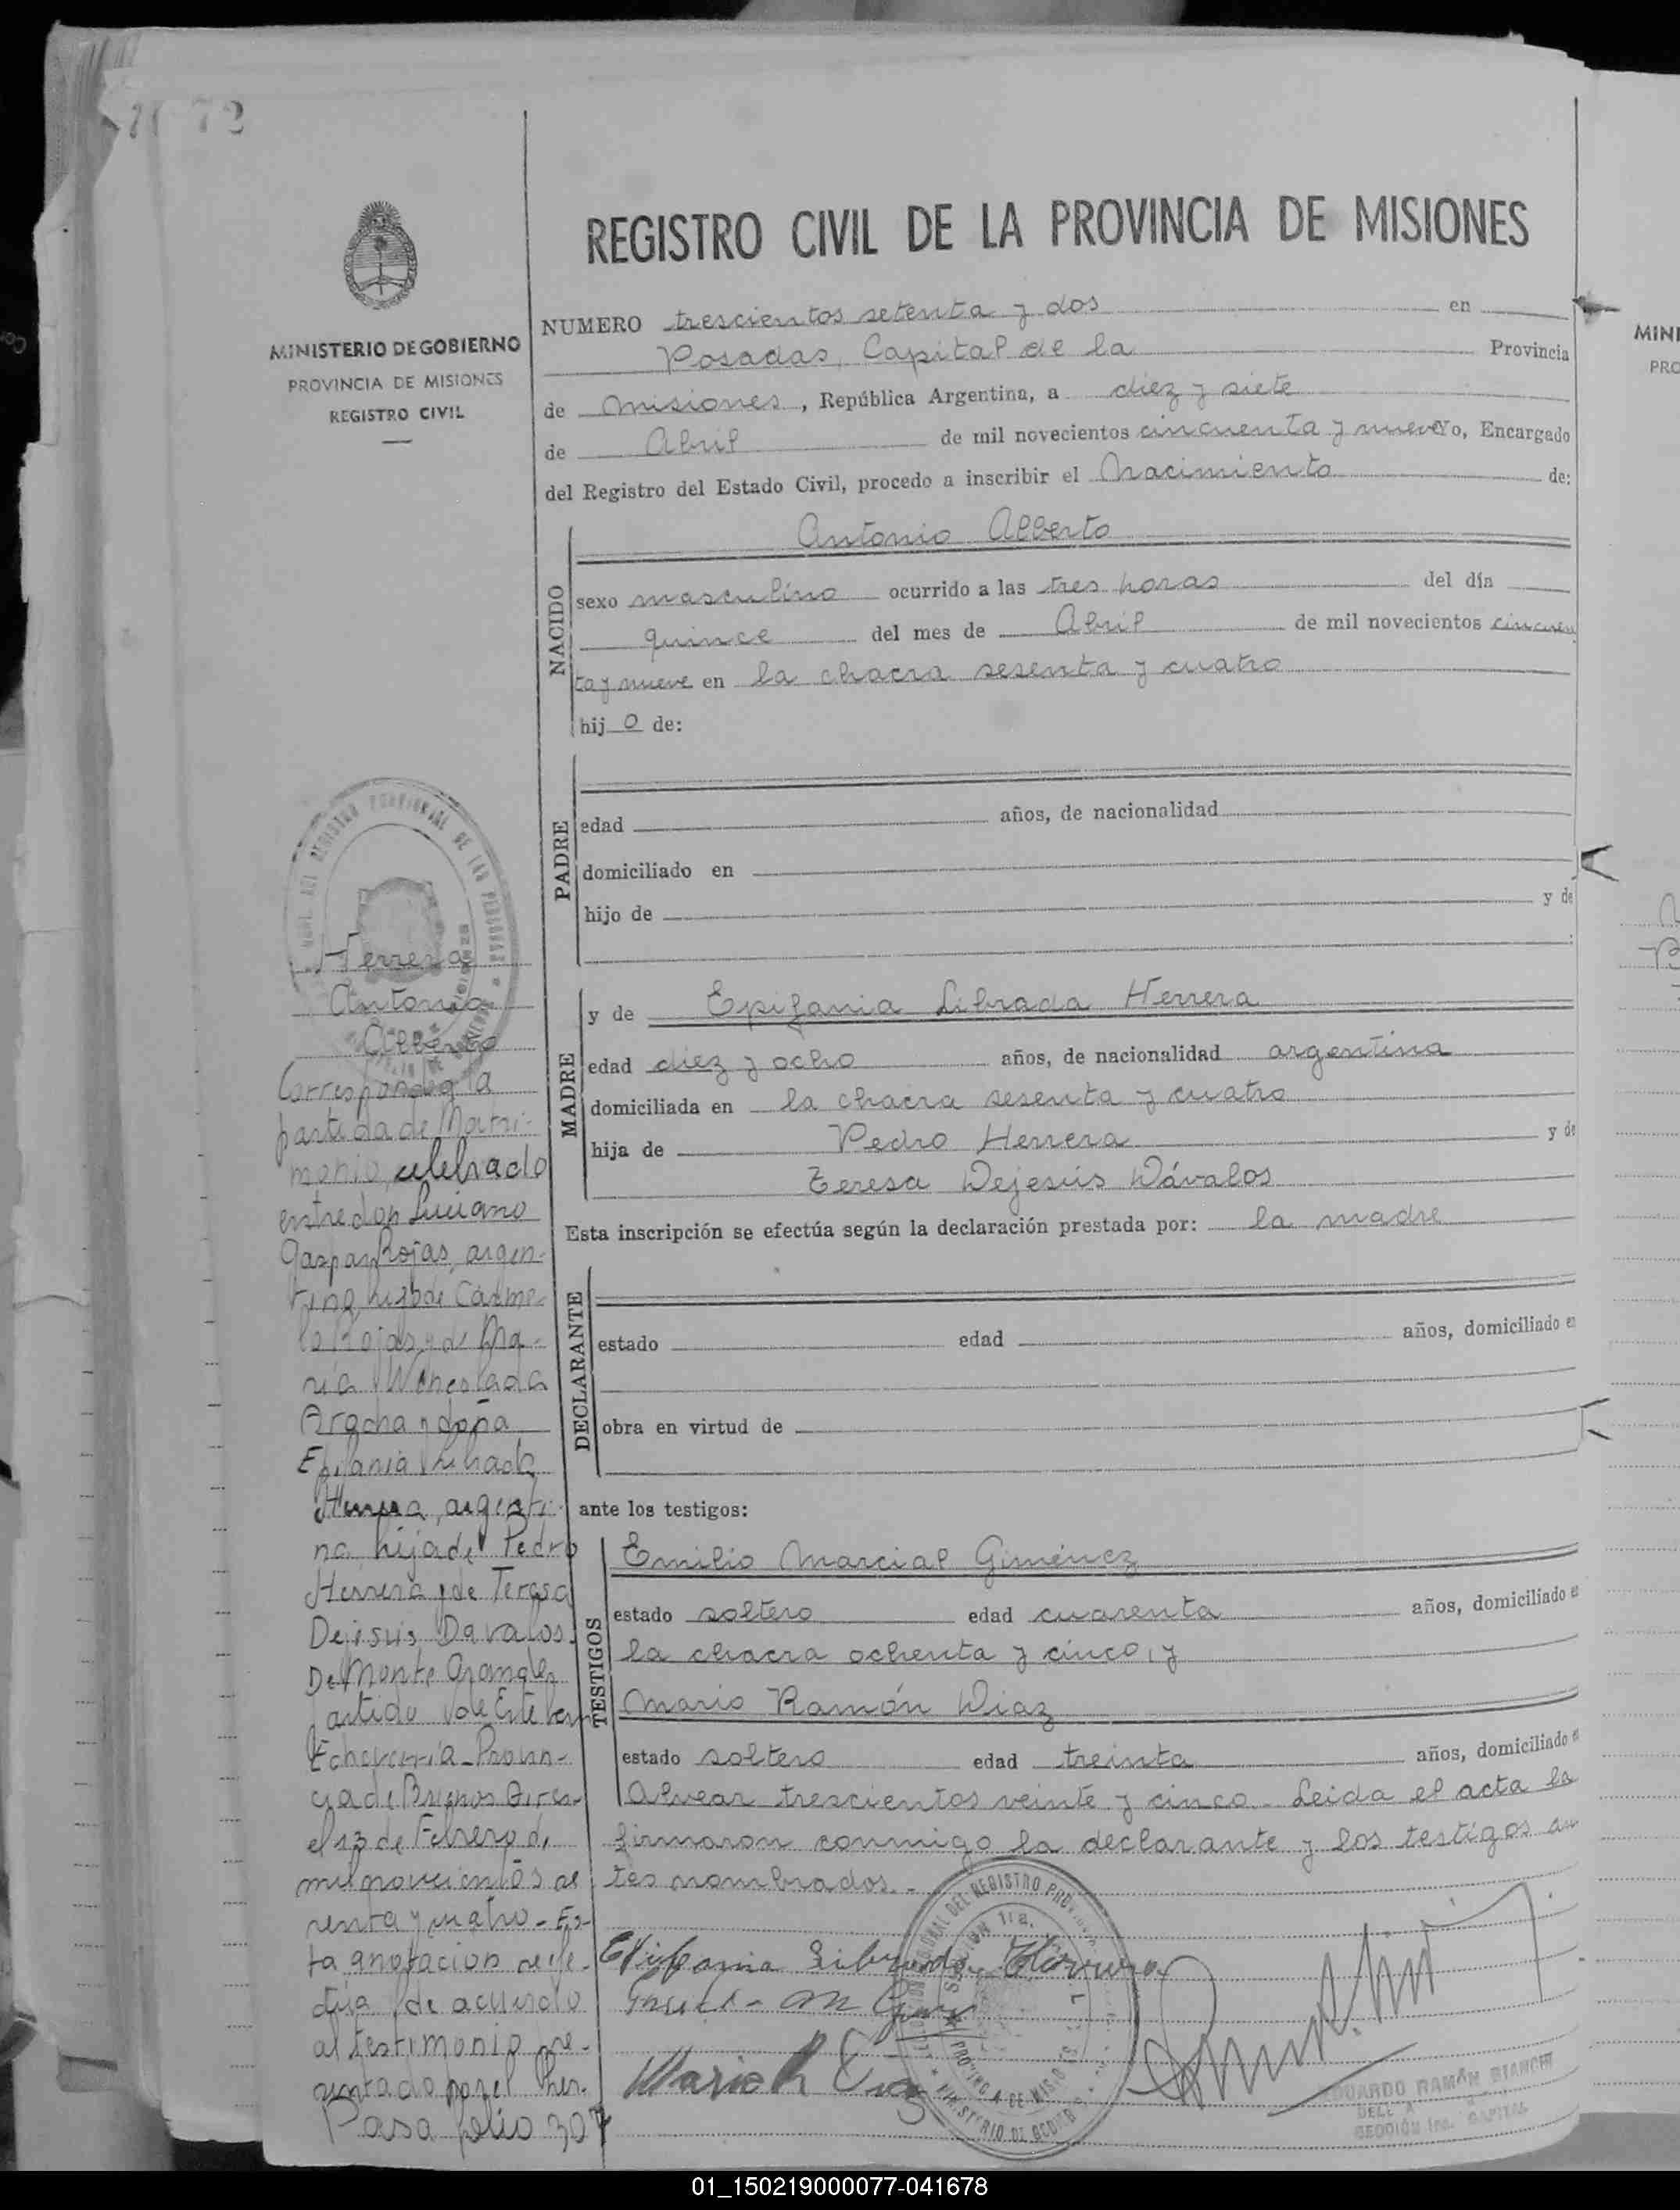 72
REGISTRO CIVIL DE LA PROVINCIA DE MISIONES
MINISTERIO DE GOBIERNO
PROVINCIA DE MISIONES
REGISTRO CIVIL
NUMERO trescientos setenta y dos en
Posadas, Capital de la Provincia
de Misiones, República Argentina, a diez y siete
de Abril de mil novecientos cincuenta y nueve Yo, Encargado
del Registro del Estado Civil, procedo a inscribir el Nacimiento de:
NACIDO
Antonio Alberto
sexo masculino ocurrido a las tres horas del día
quince del mes de Abril de mil novecientos cincuen
ta y nueve en la chacra sesenta y cuatro
hij o de:
PADRE
edad años, de nacionalidad
domiciliado en
hijo de y de
MADRE
y de Epifania Librada Herrera
edad diez y ocho años, de nacionalidad argentina
domiciliada en la chacra sesenta y cuatro
hija de Pedro Herrera y de
Teresa Dejesús Dávalos
Esta inscripción se efectúa según la declaración prestada por: la madre
DECLARANTE
estado edad años, domiciliado e
obra en virtud de
ante los testigos:
TESTIGOS
Emilio Marcial Giménez
estado soltero edad cuarenta años, domiciliado e
la chacra ochenta y cinco, y
Mario Ramón Diaz
estado soltero edad treinta años, domiciliado e
Alvear trescientos veinte y cinco - Leida el acta la
firmaron conmigo la declarante y los testigos an
tes nombrados.-
Epifania Librada Herrera
Mario R Diaz
EDUARDO RAMÓN BIANCHI
SECCIÓN 1ra. CAPITAL
Herrera
Antonio
Alberto
Corresponde a la
partida de Matri-
monio, celebrado
entre don Luciano
Gaspar Rojas, argen-
tino, hijo de Carme-
lo Rojas y de Ma-
ria Wenceslada
Aracha y doña
Epifania Librada
Herrera, argenti-
na, hija de Pedro
Herrera y de Teresa
Dejesús Davalos.
De Monte Grande,
partido de Esteban
Echeverría - Provin-
cia de Buenos Aires,
el 13 de Febrero de
mil novecientos se
senta y cuatro - Es-
ta anotacion se efe-
ctúa de acuerdo
al testimonio pre-
sentado por el
Pasa folio 307
MINI
PRO
01_150219000077-041678